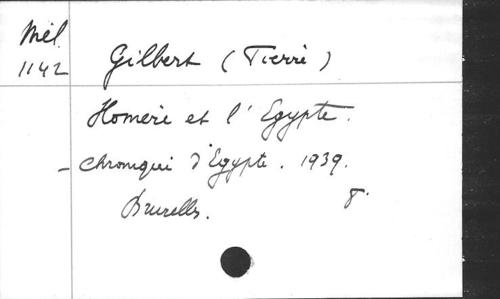 Mél.
1142
Gilbert (Pierre)
Homère et l'Egypte.
- Chronique d'Egypte. 1939.
Bruxelles. 8°